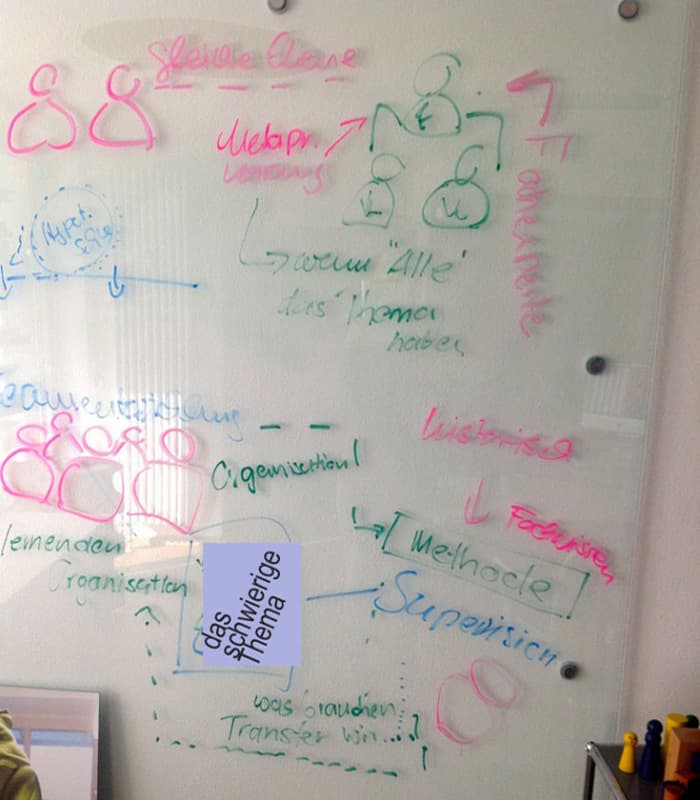 Gleiche Ebene
Metapr.
E
L
K
Hypot.
→ wenn "Alle"
das Thema
haben
Teamentwicklung
Organisation!
historisch
Fachwissen
[Methode]
lernenden
Organisation
das
schwierige
Thema
Supervision
was brauchen
Transfer wir...?